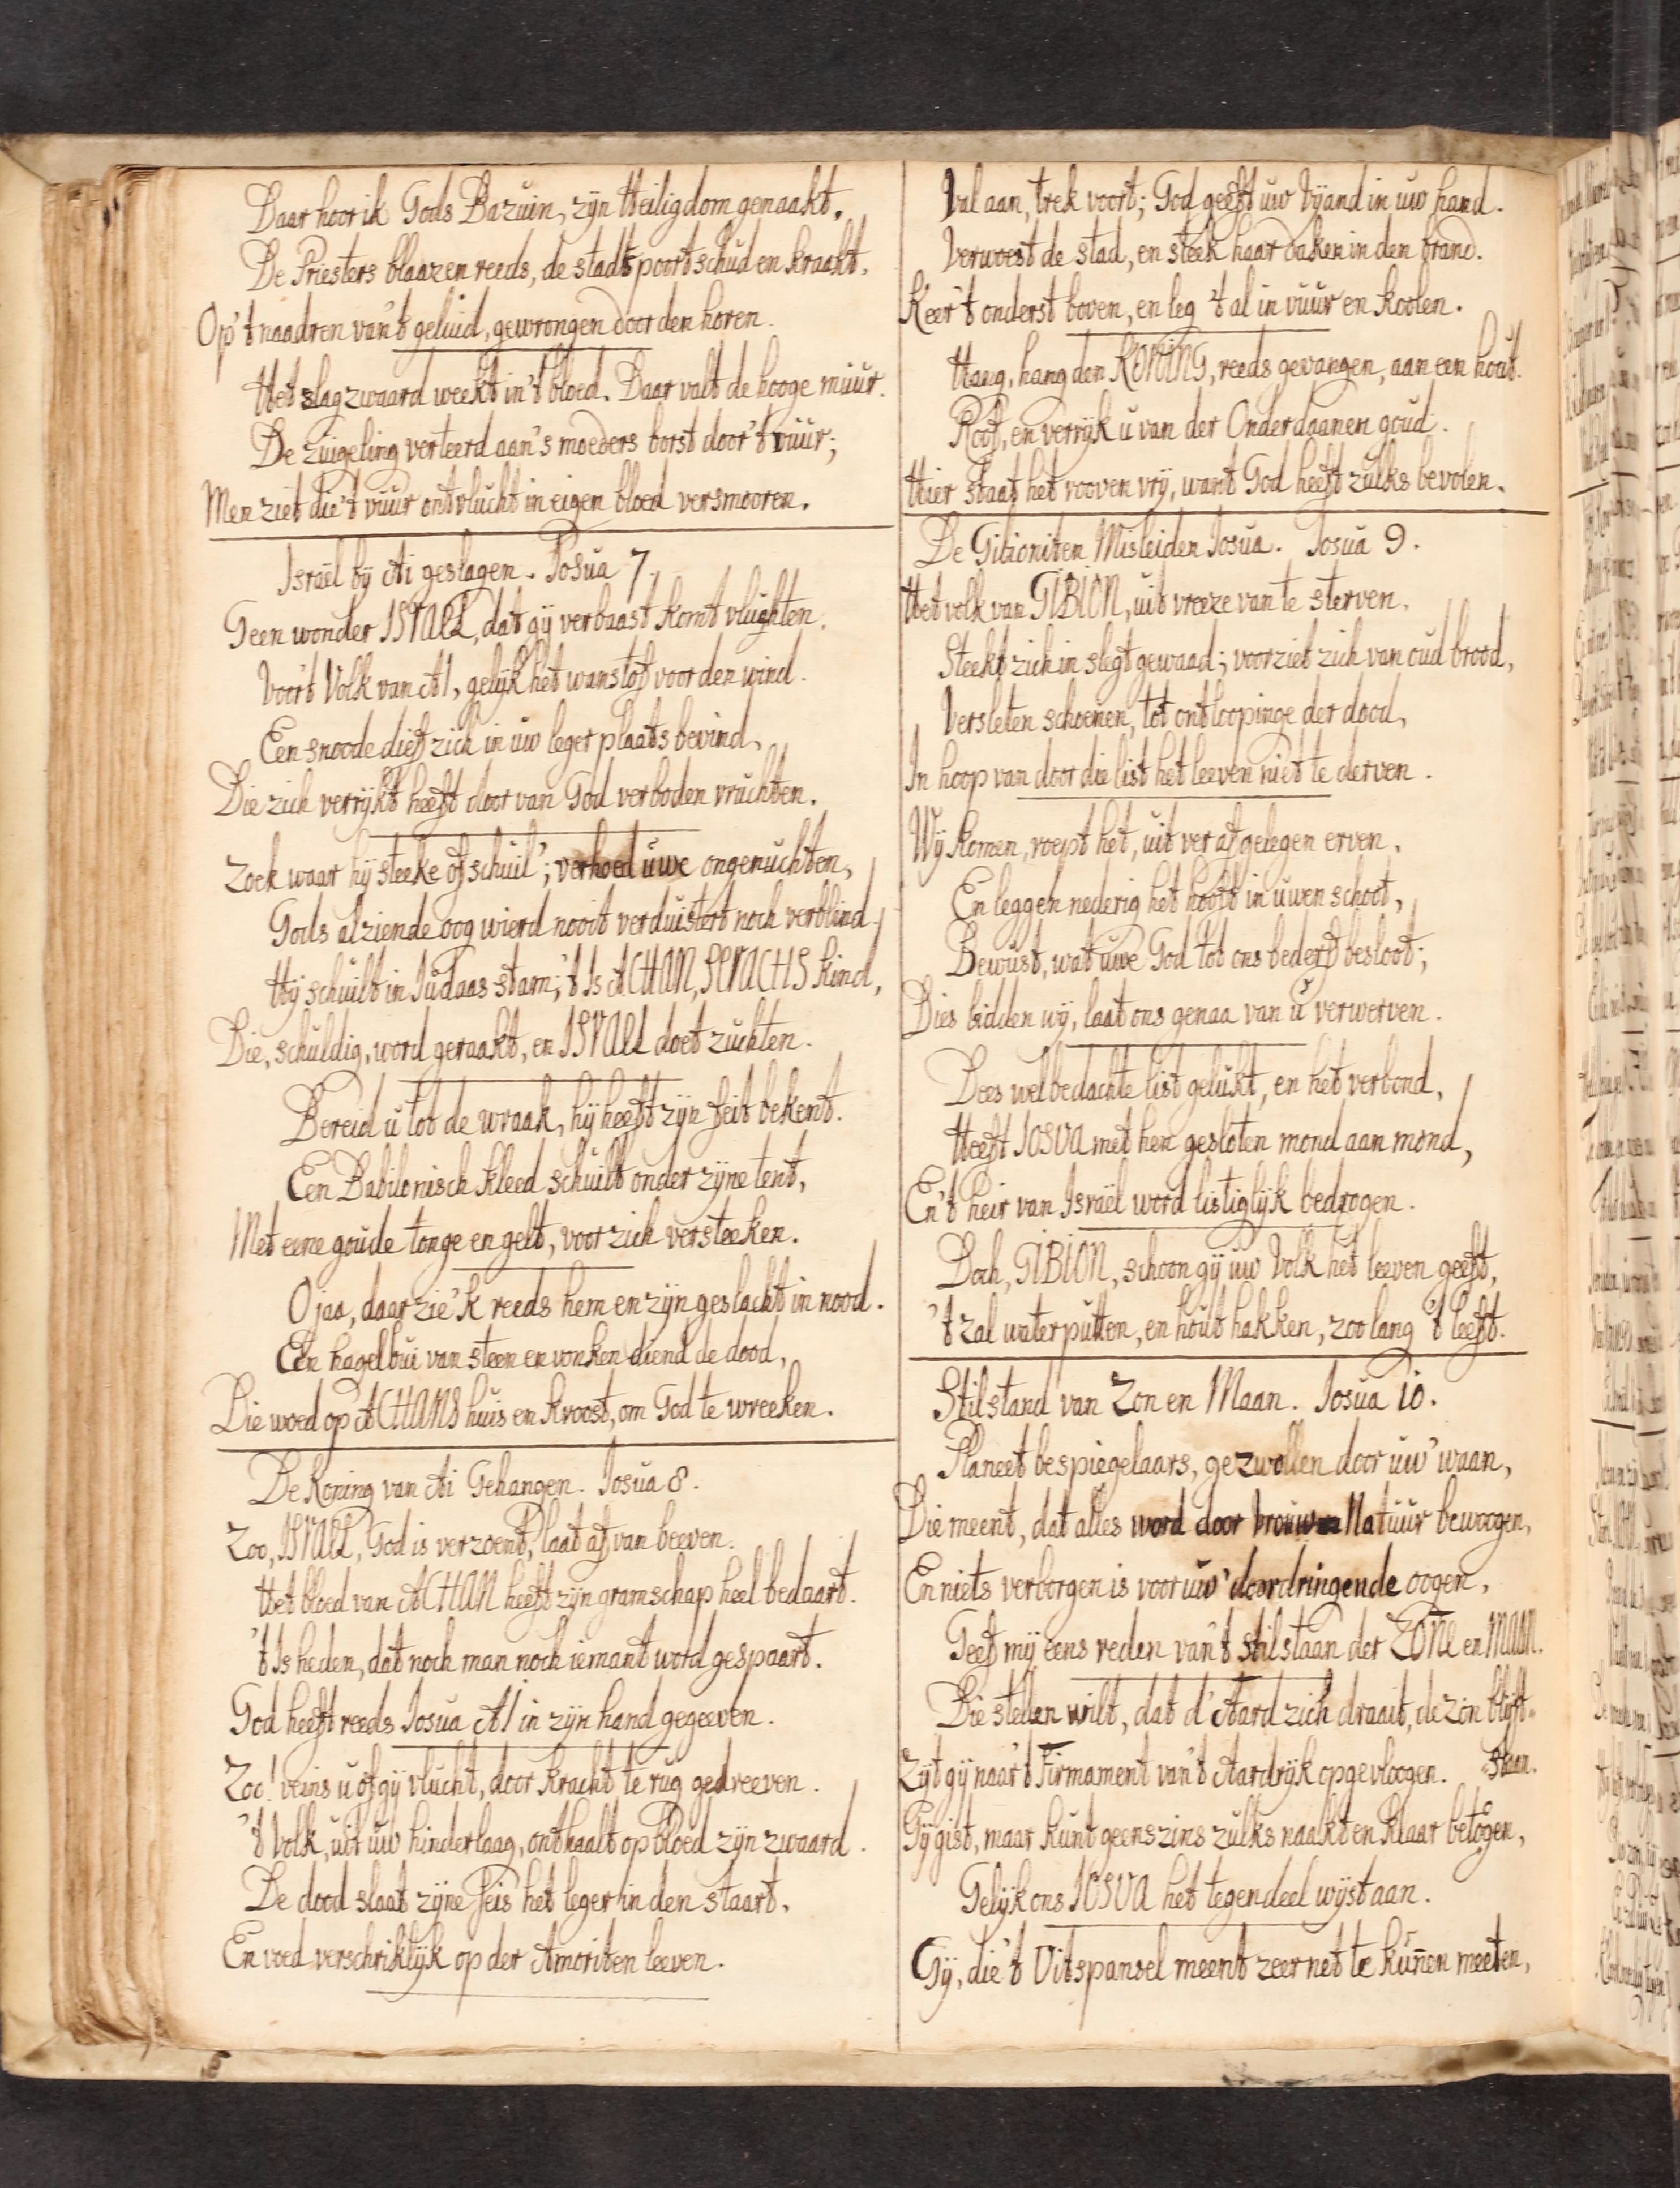 Daar hoor ik Gods Bazuin, zyn Heiligdom genaakt.
De Priesters blaazen reeds, de stadtspoort schud en kraakt,
Op 't naadren van 't geluid, gewrongen door den horen.
Het slagzwaard weekt in 't bloed. Daar valt de hooge muur.
De zuigeling verteerd aan 's moeders borst door 't vuur;
Men ziet die 't vuur ontvlucht in eigen bloed versmooren.
Israël by Ai geslagen. Josua 7.
Geen wonder ISRAEL, dat gy verbaast komt vluchten.
Voor 't Volk van AI, gelyk het wanstof voor den wind.
Een snoode dief zich in uw legerplaats bevind,
Die zich verrykt heeft door van God verboden vruchten.
Zoek waar hy steeke of schuil'; verhoed uwe ongenuchten,
Gods alziende oog wierd nooit verduistert noch verblind.
Hy schuilt in Judaas stam; 't Is ACHAN, SERACHS kind,
Die, schuldig, word geraakt, en ISRAEL doet zuchten.
Bereid u tot de wraak, hy heeft zyn feit bekent.
Een Babilonisch kleed schuilt onder zyne tent,
Met eene goude tonge en gelt, voor zich versteeken.
O jaa, daar zie 'k reeds hem en zyn geslacht in nood.
Een hagelbui van steen en vonken diend de dood,
Die woed op ACHANS huis en kroost, om God te wreeken.
De Koning van Ai Gehangen. Josua 8.
Zoo, ISRAEL, God is verzoent, laat af van beeven.
Het bloed van ACHAN heeft zyn gramschap heel bedaart.
't Is heden, dat noch man noch iemant word gespaart.
God heeft reeds Josua AI in zyn hand gegeeven.
Zoo! veins u of gy vlucht, door kracht te rug gedreeven.
't Volk, uit uw hinderlaag, onthaalt op bloed zyn zwaard.
De dood slaat zyne seis het leger in den staart,
En voed verschriklyk op der Amoriten leeven.
Val aan, trek voort; God geeft uw Vyand in uw hand.
Verwoest de stad, en steek haar daken in den brand.
Keer 't onderst boven, en leg 't al in vuur en koolen.
Hang, hang den KONING, reeds gevangen, aan een hout.
Roof, en verryk u van der Onderdaanen goud.
Hier staat het rooven vry, want God heeft zulks bevolen.
De Gibioniten Misleiden Josua. Josua 9.
Het volk van GIBION, uit vreeze van te sterven,
Steekt zich in slegt gewaad; voorziet zich van oud brood,
Versleten schoenen, tot ontloopinge der dood,
In hoop van door die list het leeven niet te derven.
Wy komen, roept het, uit ver afgelegen erven,
En leggen nederig het hooft in uwen schoot,
Bewust, wat uwe God tot ons bederf besloot;
Dies bidden wy, laat ons genaa van u verwerven.
Dees welbedachte list gelukt, en het verbond,
Heeft JOSUA met hen gesloten mond aan mond,
En 't heir van Israël word listiglyk bedrogen.
Doch, GIBION, schoon gy uw Volk het leeven geeft,
't Zal waterputten, en hout hakken, zoo lang 't leeft.
Stilstand van Zon en Maan. Josua 10.
Planeet bespiegelaars, gezwollen door uw' waan,
Die meent, dat alles word door vrouw Natuur bewoogen,
En niets verborgen is voor uw' doordringende oogen,
Geef my eens reden van 't stilstaan der ZONE en MAAN.
Die stellen wilt, dat d' Aard zich draait, de zon blyft-
-staan.
Zyt gy naar 't Firmament van 't Aardryk opgevloogen.
Gy gist, maar kunt geenszins zulks naakt en klaar betogen,
Gelyk ons JOSUA het tegendeel wyst aan.
Gy, die 't Uitspansel meent zeer net te kun̄en meeten,